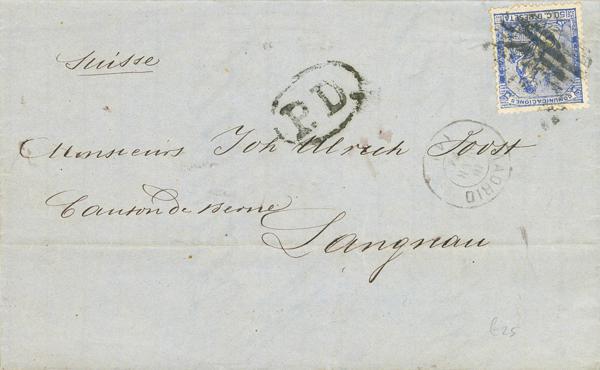 Suisse
50 C. DE PESETA
COMUNICACIONES
P.D.
Monsieurs Joh Ulrich Joost
MADRID
JUN
Canton de Berne
Langnau
€25